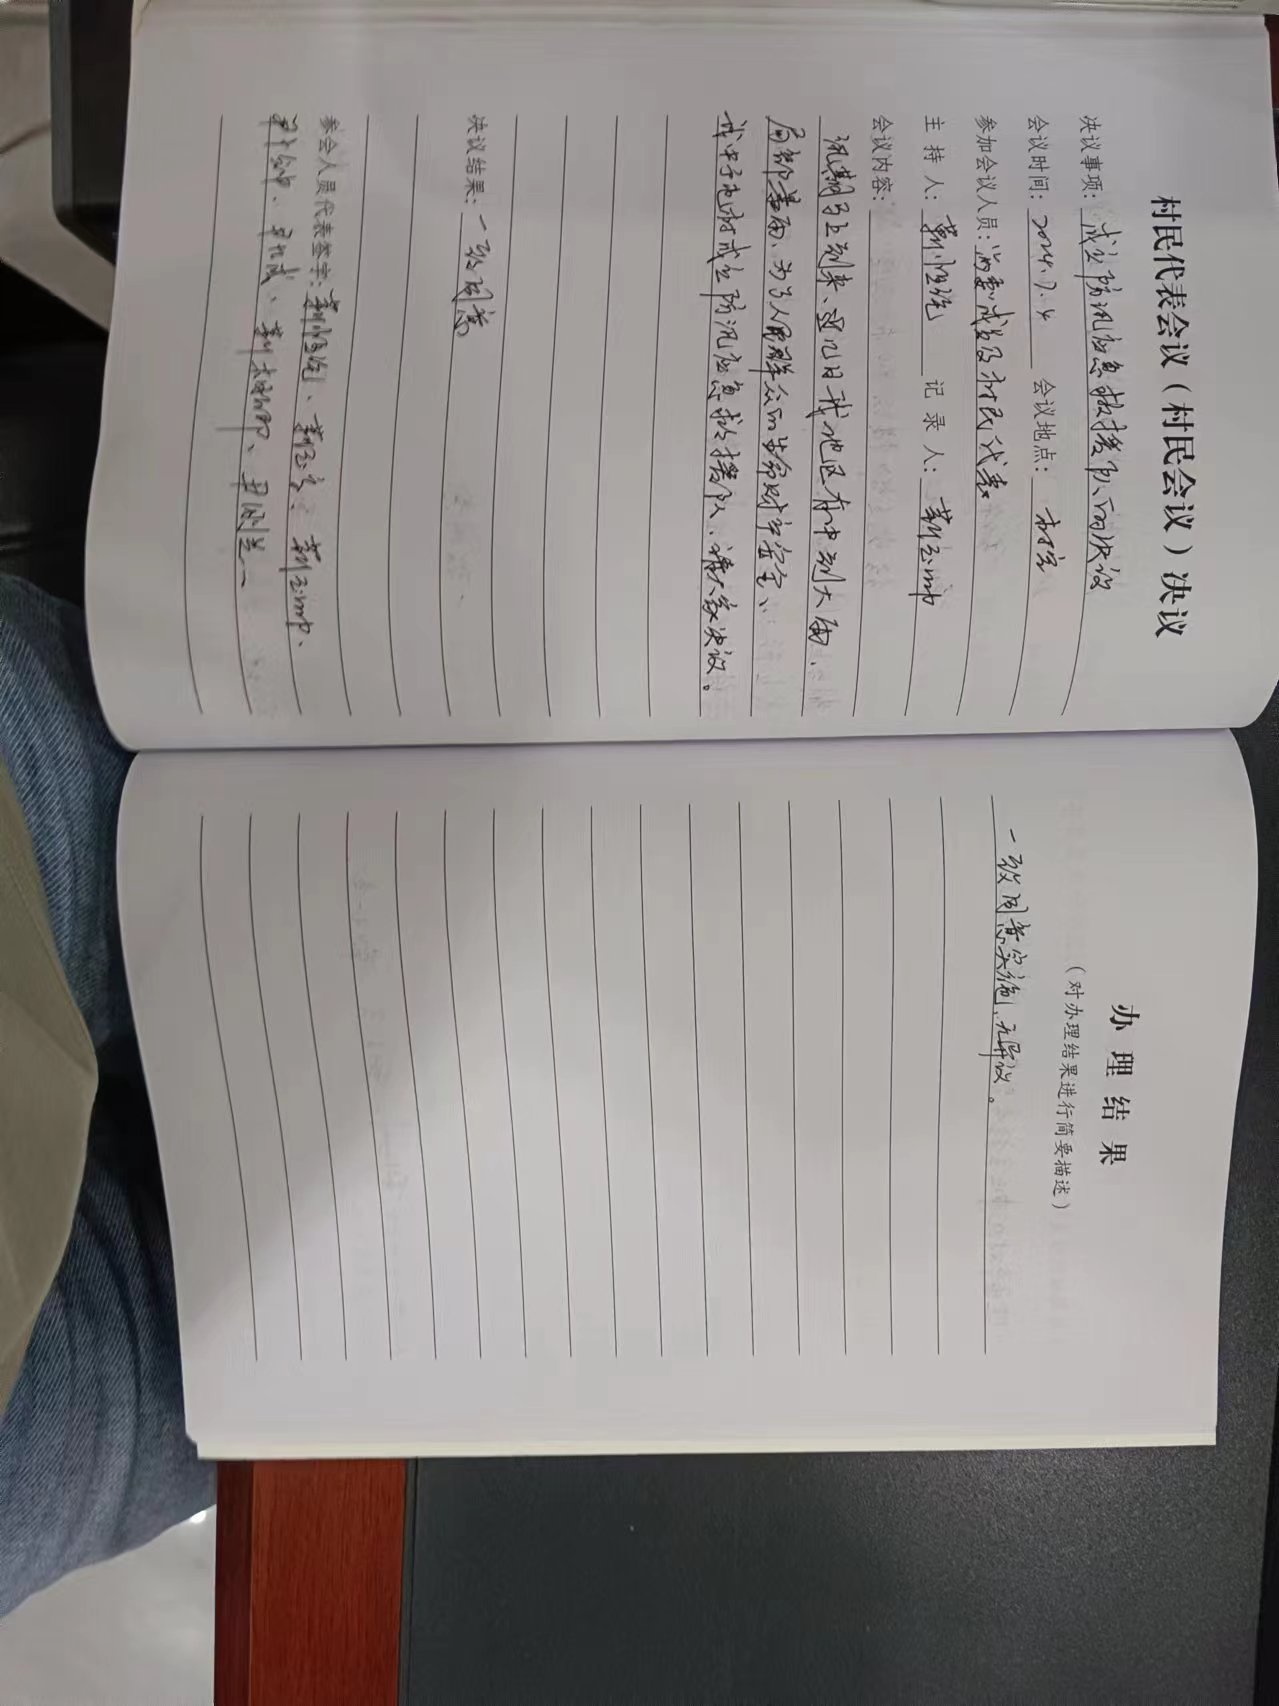 村民代表会议（村民会议）决议
决议事项：成立防汛应急救援队的决议
会议时间：2024.7.4 会议地点：村室
参加会议人员：两委成员及村民代表
主 持 人：靳恒 记 录 人：靳玉
会议内容：
汛期马上到来、近几日我地区有中到大雨、
局部暴雨、为了人民群众的生命财产安全、
我村成立防汛应急救援队、请大家决议。
决议结果：一致同意
参会人员代表签字：靳恒、靳玉、靳玉、
办 理 结 果
（对办理结果进行简要描述）
一致同意实施，无异议。